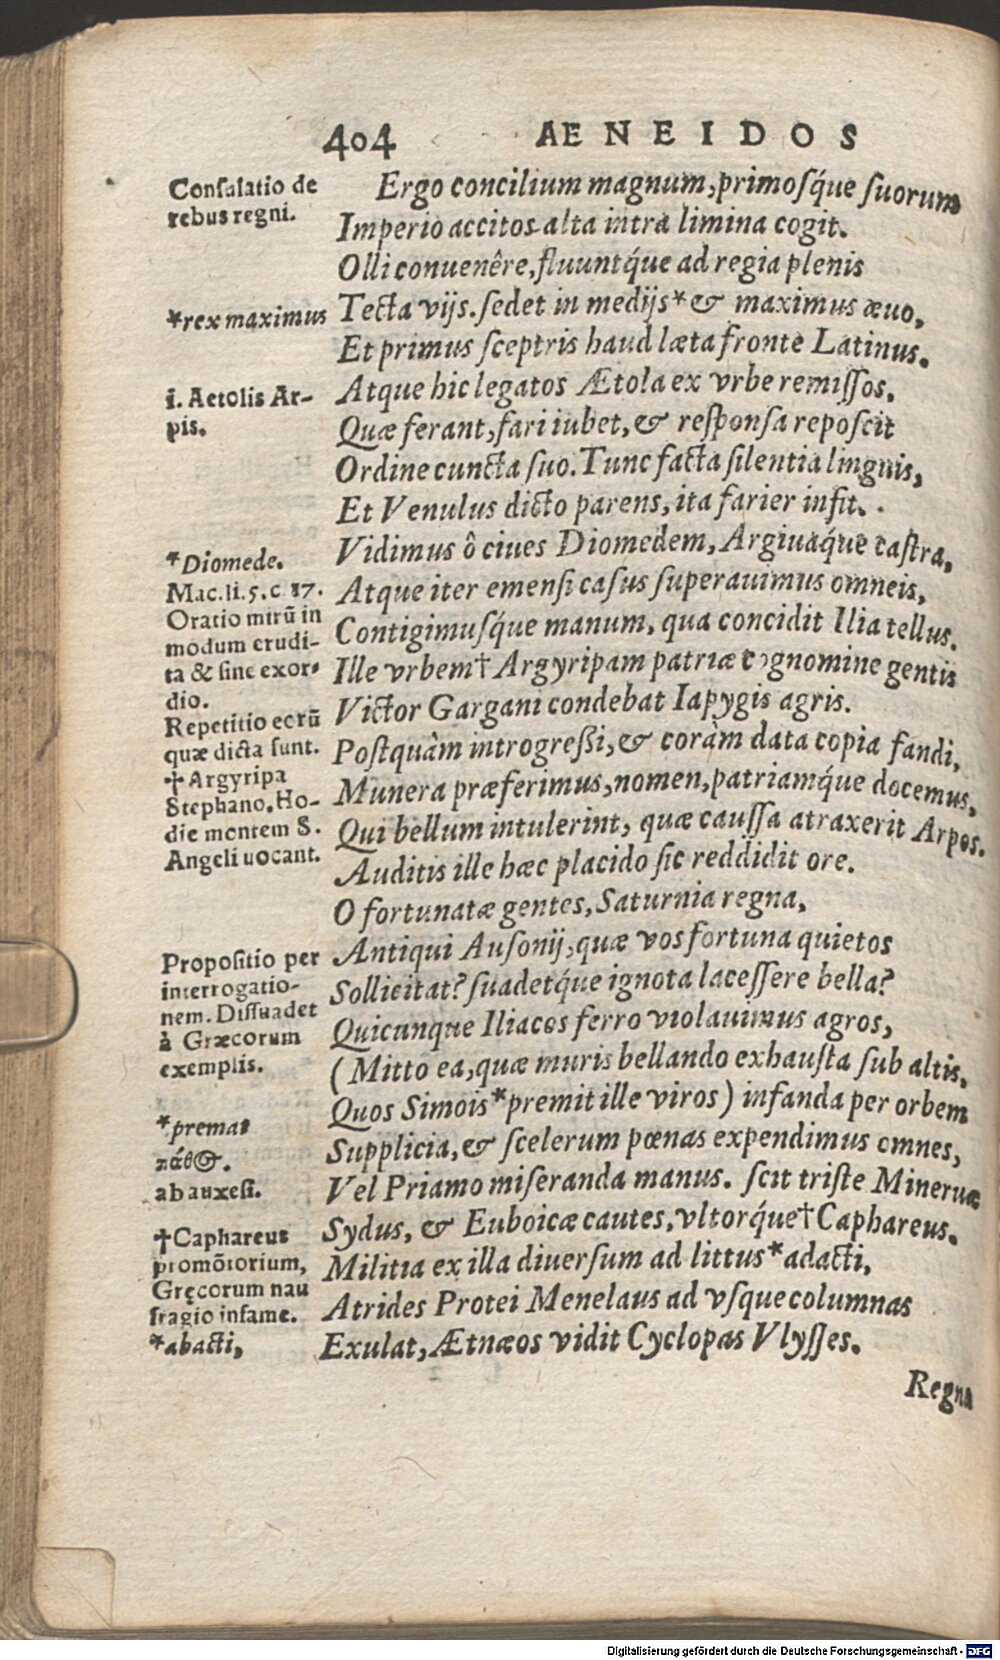 404 AENEIDOS
Consulatio de
rebus regni.
Ergo concilium magnum, primosq́ue suorum
Imperio accitos alta intra limina cogit.
Olli conuenêre, fluuntq́ue ad regia plenis
*rex maximus
Tecta vijs. sedet in medijs* & maximus æuo,
Et primus sceptris haud læta fronte Latinus.
i. Aetolis Ar-
pis.
Atque hic legatos Ætola ex vrbe remissos,
Quæ ferant, fari iubet, & responsa reposcit
Ordine cuncta suo. Tunc facta silentia linguis,
Et Venulus dicto parens, ita farier infit.
*Diomede.
Mac. li. 5. c. 17.
Oratio mirū in
modum erudi-
ta & sine exor-
dio.
Repetitio eorū
quæ dicta sunt.
†Argyripa
Stephano. Ho-
die montem S.
Angeli uocant.
Vidimus ô ciues Diomedem, Argiuaq́ue castra,
Atque iter emensi casus superauimus omneis,
Contigimusq́ue manum, qua concidit Ilia tellus.
Ille vrbem† Argyripam patriæ cognomine gentis
Victor Gargani condebat Iapygis agris.
Postquâm introgressi, & coràm data copia fandi,
Munera præferimus, nomen, patriamq́ue docemus,
Qui bellum intulerint, quæ caussa atraxerit Arpos.
Auditis ille hæc placido sic reddidit ore.
O fortunatæ gentes, Saturnia regna,
Propositio per
interrogatio-
nem. Dissuadet
à Græcorum
exemplis.
Antiqui Ausonij, quæ vos fortuna quietos
Sollicitat? suadetq́ue ignota lacessere bella?
Quicunque Iliacos ferro violauimus agros,
(Mitto ea, quæ muris bellando exhausta sub altis,
*premat
πάθος.
ab auxesi.
Quos Simois* premit ille viros) infanda per orbem
Supplicia, & scelerum pœnas expendimus omnes,
Vel Priamo miseranda manus. scit triste Mineruæ
†Caphareus
promōtorium,
Gręcorum nau
fragio infame.
*abacti,
Sydus, & Euboicæ cautes, vltorq́ue† Caphareus.
Militia ex illa diuersum ad littus* adacti,
Atrides Protei Menelaus ad vsque columnas
Exulat, Ætnæos vidit Cyclopas Vlysses.
Regna
Digitalisierung gefördert durch die Deutsche Forschungsgemeinschaft - DFG